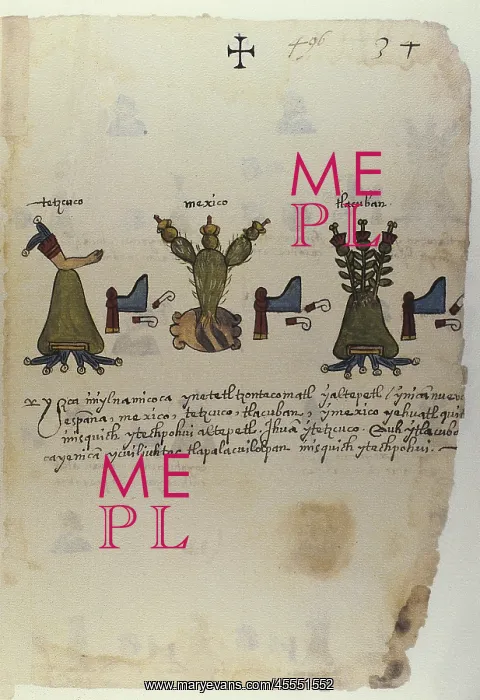 496 3
tetzcuco mexico tlacuban
ME
PL
y Yzca mylnamicoca ynetetl tzontecomatl yaltepetl ynican nueva
españa, mexico, tetzcuco, tlacuban, ymexico yehuatl
misquich ytechpohui altepetl. Ihua ytetzcuco.
tlapalacuilolpan misquich ytechpohui.
ME
PL
www.maryevans.com/45551552